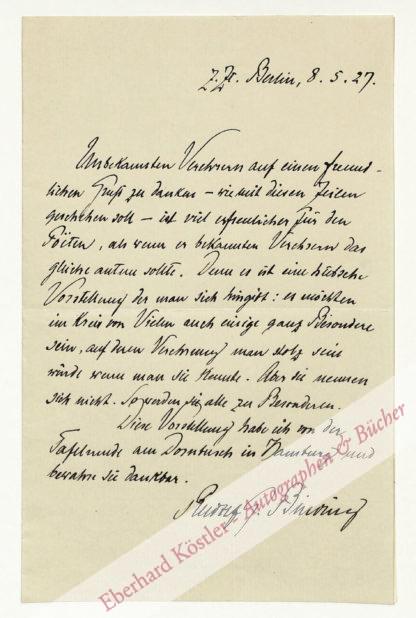 z. Zt. Berlin, 8. 5. 27.
Unbekannten Verehrern auf einen freund-
lichen Gruß zu danken – wie mit diesen Zeilen
geschehen soll – ist viel erfreulicher für den
Poeten, als wenn er bekannten Verehrern das
gleiche antun sollte. Denn es ist eine hübsche
Vorstellung der man sich hingibt: es möchten
im Kreis von Vielen auch einige ganz Besondere
sein, auf deren Verehrung man stolz sein
würde wenn man sie kennte. Aber sie nennen
sich nicht. So werden sie alle zu Besonderen.
Diese Vorstellung habe ich von der
Tafelrunde am Dornbusch in Hamburg und
bewahre sie dankbar.
Rudolf G. Binding
Eberhard Köstler - Autographen & Bücher